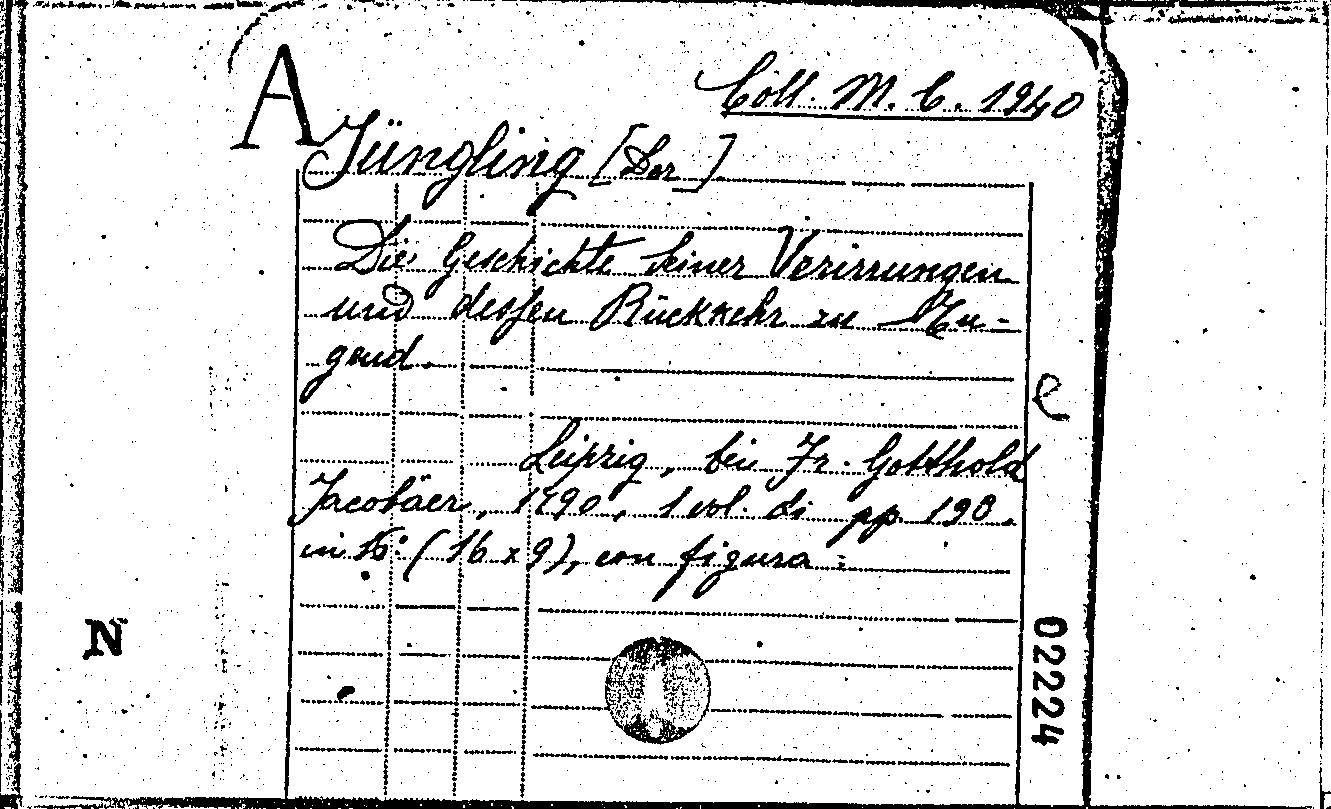 A
Coll. M. C. 1940
Jüngling [Der]
Die Geschichte seiner Verirrungen
und dessen Rückkehr zu Tu-
gend.
e
Leipzig, bei Fr. Gotthold
Jacobäer, 1790, 1 vol. di pp. 190.
in 16° (16 x 9), con figura.
N
02224